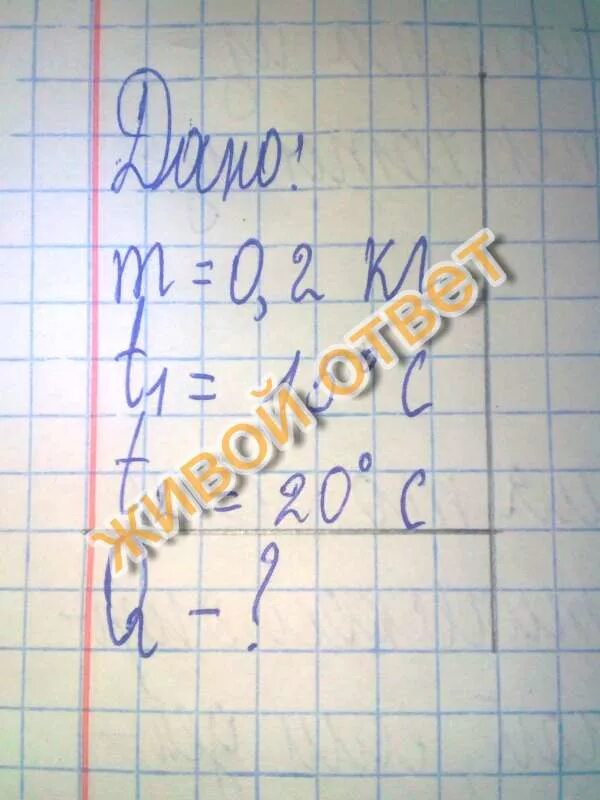 Дано:
m = 0,2 кг
t₁ = ° С
t = 20° С
Q - ?
ЖИВОЙ ОТВЕТ